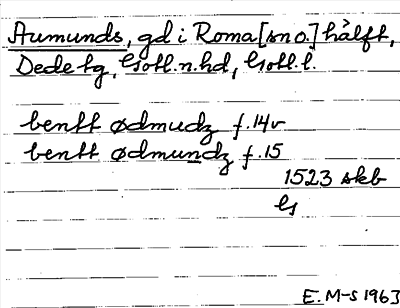 Aumunds, gd i Roma [sn o.] hälft,
Dede tg, Gotl. n. hd, Gotl. l.
benkt ødmudz f. 14v
benkt ødmundz f. 15
1523 skb
Gs
E. M-S 1963